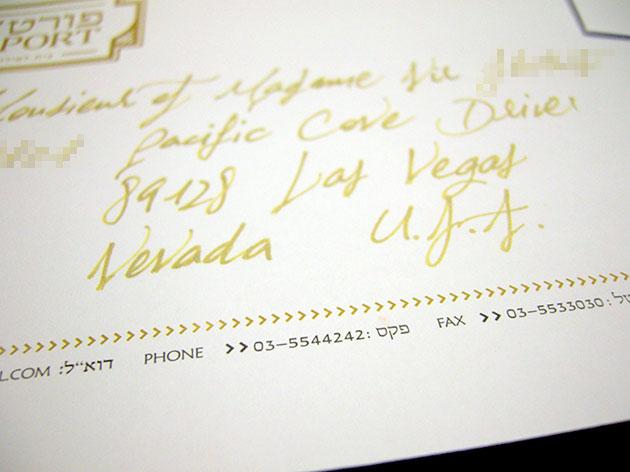 פורט
PORT
Monsieur et Madame
Pacific Cove Driver
89128 Las Vegas
Nevada U.S.A.
L.COM דוא״ל: PHONE >> 03-5544242 :פקס FAX >> 03-5533030 :